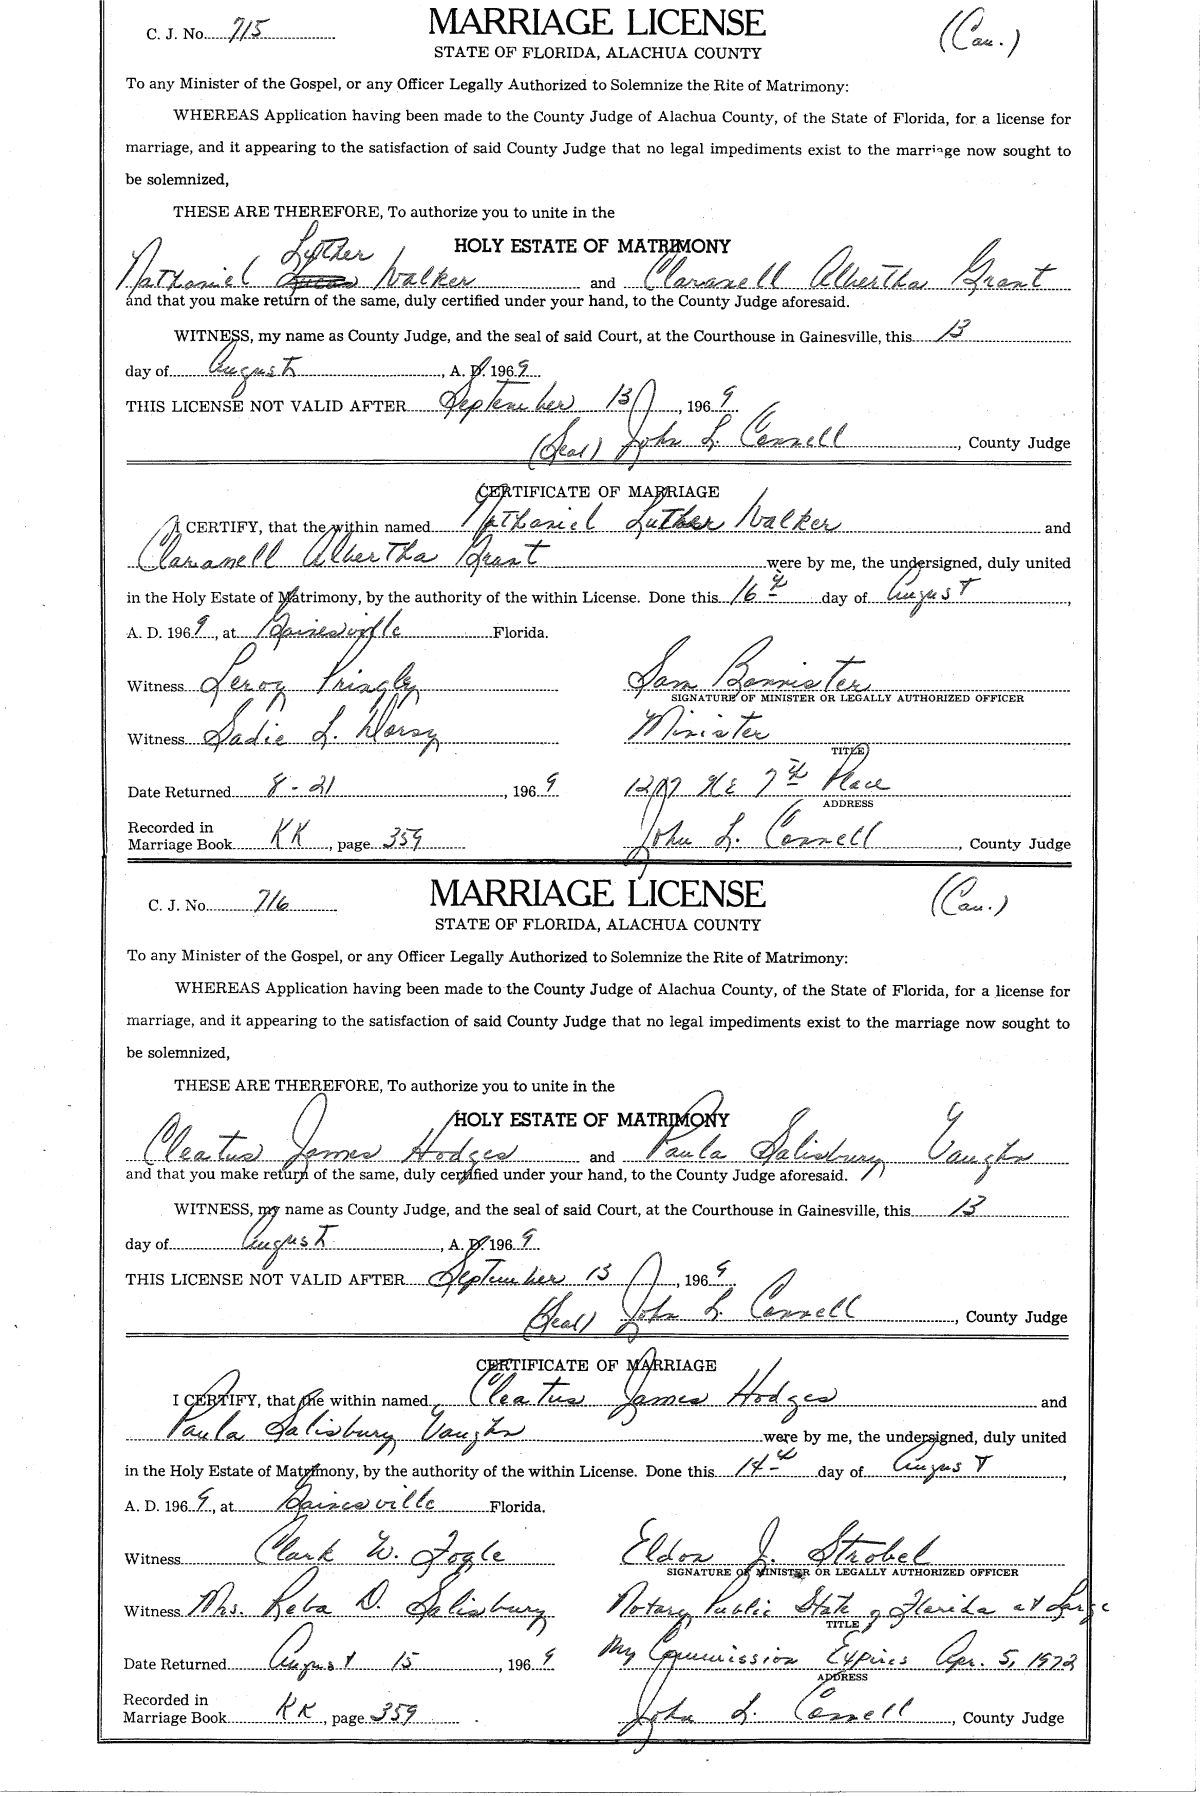 C. J. No. 715 MARRIAGE LICENSE (Cau.)
STATE OF FLORIDA, ALACHUA COUNTY
To any Minister of the Gospel, or any Officer Legally Authorized to Solemnize the Rite of Matrimony:
WHEREAS Application having been made to the County Judge of Alachua County, of the State of Florida, for a license for
marriage, and it appearing to the satisfaction of said County Judge that no legal impediments exist to the marriage now sought to
be solemnized,
THESE ARE THEREFORE, To authorize you to unite in the
HOLY ESTATE OF MATRIMONY
Nathaniel Luther Walker and Claranell Albertha Grant
and that you make return of the same, duly certified under your hand, to the County Judge aforesaid.
WITNESS, my name as County Judge, and the seal of said Court, at the Courthouse in Gainesville, this 13
day of August, A. D. 1969
THIS LICENSE NOT VALID AFTER September 13, 1969
(Seal) John L. Connell, County Judge
CERTIFICATE OF MARRIAGE
I CERTIFY, that the within named Nathaniel Luther Walker and
Claranell Albertha Grant were by me, the undersigned, duly united
in the Holy Estate of Matrimony, by the authority of the within License. Done this 16th day of August,
A. D. 1969, at Gainesville Florida.
Witness Leroy Pringley Sam Bannister
SIGNATURE OF MINISTER OR LEGALLY AUTHORIZED OFFICER
Witness Sadie L. Dorsy Minister
TITLE
Date Returned 8-21, 1969 1207 NE 7th Place
ADDRESS
Recorded in
Marriage Book KK, page 359 John L. Connell, County Judge
C. J. No. 716 MARRIAGE LICENSE (Cau.)
STATE OF FLORIDA, ALACHUA COUNTY
To any Minister of the Gospel, or any Officer Legally Authorized to Solemnize the Rite of Matrimony:
WHEREAS Application having been made to the County Judge of Alachua County, of the State of Florida, for a license for
marriage, and it appearing to the satisfaction of said County Judge that no legal impediments exist to the marriage now sought to
be solemnized,
THESE ARE THEREFORE, To authorize you to unite in the
HOLY ESTATE OF MATRIMONY
Cleatus James Hodges and Paula Salisbury Vaughn
and that you make return of the same, duly certified under your hand, to the County Judge aforesaid.
WITNESS, my name as County Judge, and the seal of said Court, at the Courthouse in Gainesville, this 13
day of August, A. D. 1969
THIS LICENSE NOT VALID AFTER September 13, 1969
(Seal) John L. Connell, County Judge
CERTIFICATE OF MARRIAGE
I CERTIFY, that the within named Cleatus James Hodges and
Paula Salisbury Vaughn were by me, the undersigned, duly united
in the Holy Estate of Matrimony, by the authority of the within License. Done this 14th day of August,
A. D. 1969, at Gainesville Florida.
Witness Clark W. Fogle Eldon J. Strobel
SIGNATURE OF MINISTER OR LEGALLY AUTHORIZED OFFICER
Witness Mrs. Reba D. Salisbury Notary Public State of Florida at Large
TITLE
Date Returned August 15, 1969 My Commission Expires Apr. 5, 1972
ADDRESS
Recorded in
Marriage Book KK, page 359 John L. Connell, County Judge